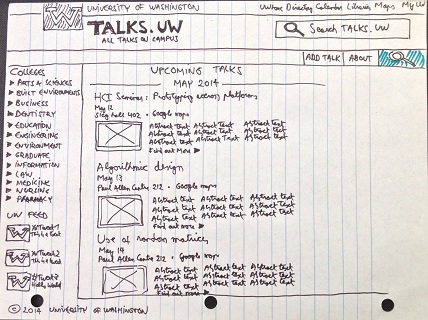 UNIVERSITY OF WASHINGTON
UWHome Directory Calendar Libraries Maps My UW
TALKS.UW
ALL TALKS ON CAMPUS
Search TALKS.UW
ADD TALK
ABOUT
COLLEGES
ARTS & SCIENCES
BUILT ENVIRONMENTS
BUSINESS
DENTISTRY
EDUCATION
ENGINEERING
ENVIRONMENT
GRADUATE
INFORMATION
LAW
MEDICINE
NURSING
PHARMACY
UW FEED
UPCOMING TALKS
MAY 2014
HCI Seminar: Prototyping
May 12
Sieg Hall 402 • Google map
Abstract text Abstract text
Abstract text Abstract text
Abstract text Abstract text
Find out more
Algorithmic design
May 13
Paul Allen Center 212 • Google map
Abstract text Abstract text
Abstract text Abstract text
Abstract text Abstract text
Find out more
Use of random
May 14
Paul Allen Center 212 • google map
Abstract text Abstract text
Abstract text Abstract text
Abstract text Abstract text
Find out more
© 2014 UNIVERSITY OF WASHINGTON